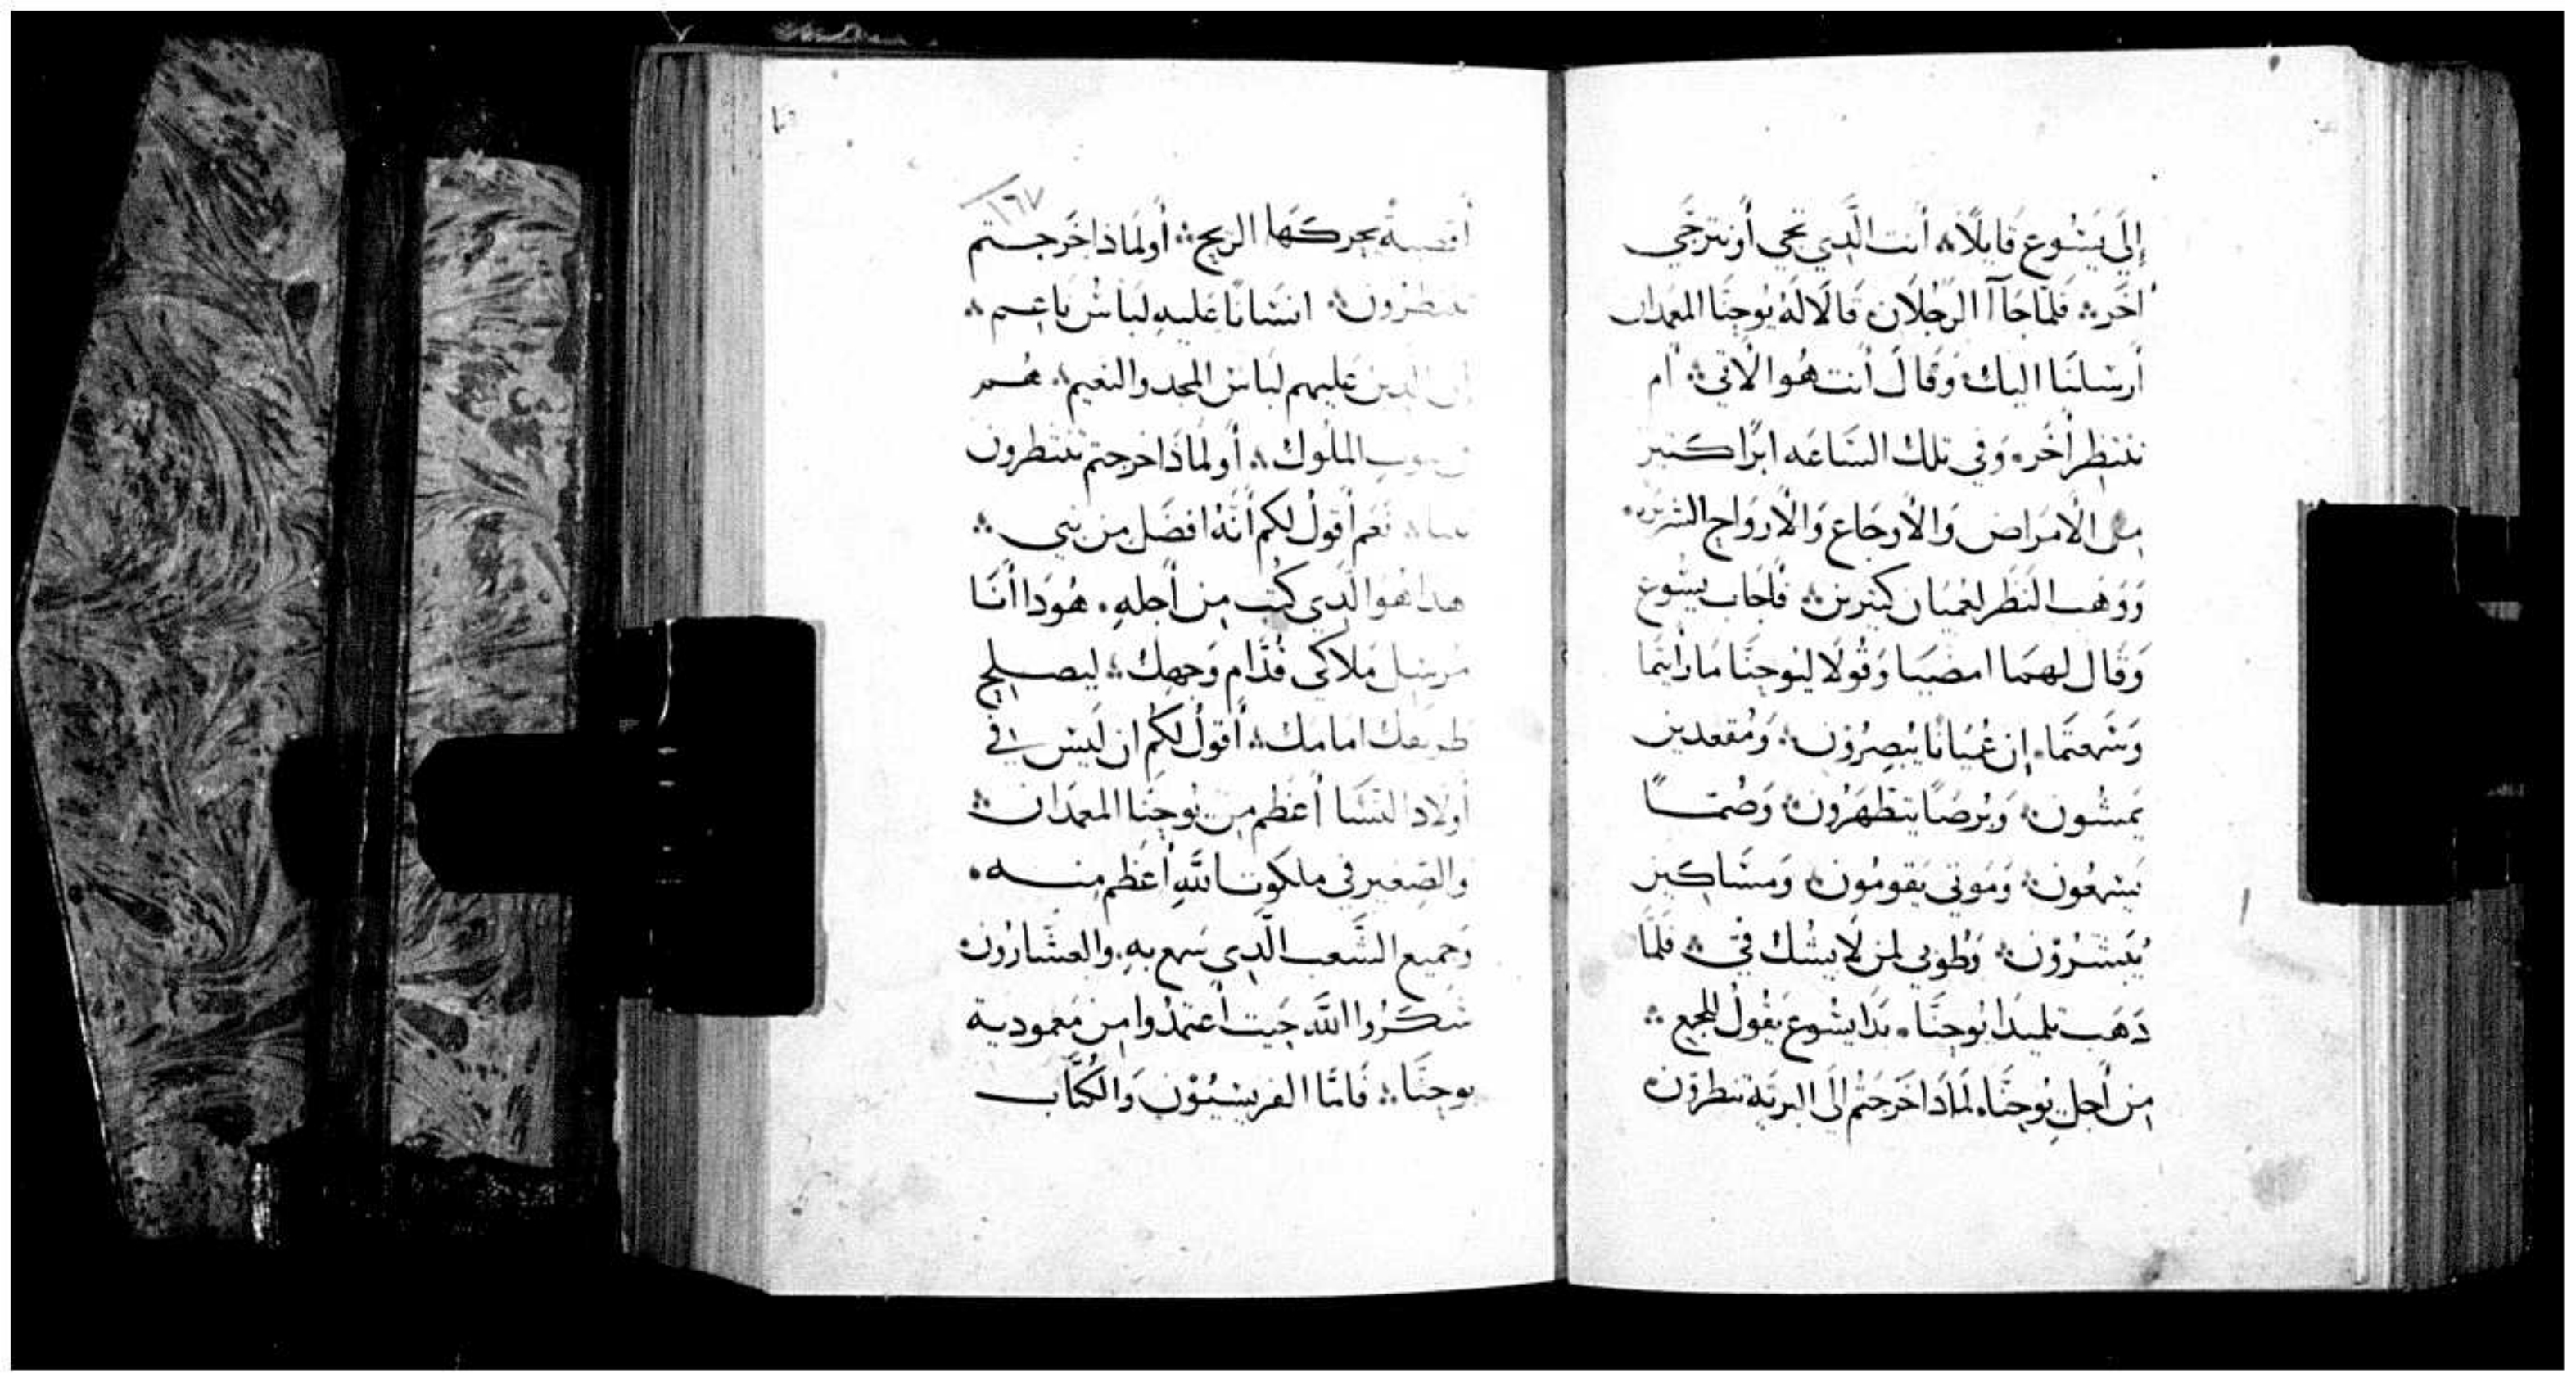 إلَى يَشُوع قَايِلًا ۞ أنت الَّدِي تجي أو نترجَّي
أخَر ۞ فَلمَّا جَاآ الرَجُلَان قَالَا لَهُ يُوحنَّا المعمدان
أرسَلنَا اليك وَقَالَ أنت هُوَ الأتي ۞ أم
ننتظِر أخَر ۞ وَفي تلك السَّاعَه ابرَا كثير
مِن الأمرَاض وَالأوجَاع وَالأروَاح الشريره
وَوَهَب النَظَر لعُميَان كثيرين ۞ فَأجَاب يشُوع
وَقَال لهمَا امضيَا وَقُولَا ليُوحنَّا مَا رَأيتمَا
وَسَمعتمَا ۞ إن عُميَانًا يُبصِرُون ۞ وَمُقعدين
يَمشُون ۞ وَبُرصًا يتطَهَرُون ۞ وَصُمًّا
يَسمَعُون ۞ وَمَوتي يَقومُون ۞ وَمسَاكِين
يُبَشَرُوْن ۞ وَطُوبي لمن لَا يشُك فيَّ ۞ فَلمَّا
دَهَب تلميدَا يُوحنَّا ۞ بدَا يشُوع يَقُولُ للجمع ۞
مِن أجلِ يُوحنَّا ۞ لمَادَا خَرجتُم إلَى البريَّة تنظرُون
١٦٧
أقصبةً يحركَها الريح ۞ أو لمَاذا خَرجتم
تنظرُون ۞ انسَانًا عَليهِ لبَاسٌ نَاعم ۞
إن الدين عَليهم لبَاسُ المجد والنعيم ۞ هُم
في بيوت الملُوك ۞ أو لمَاذَا خرجتم تنتظرون
نبيا ۞ نَعَم أقولُ لكم أنَّهُ افضَل من نبي ۞
هدا هُوَ الَّدِي كُتِب مِن أجلهِ ۞ هُوَدَا أنَا
مُرسِل مَلَاكي قُدَّام وَجهك ۞ ليصلح
طريقك امامك ۞ أقولُ لكُم ان ليسَ في
أولَاد النسَا أعظم من يُوحنَّا المعمَدان ۞
وَالصغير في ملكوت اللَّهِ أعظم منه ۞
وَجميع الشَّعب الَّدِي سَمع بهِ ۞ والعشَّارُون
شكَرُوا اللَّه حَيث اعتمدُوا من مَعموديه
يوحنَّا ۞ فَامَّا الفريسيُوْن وَالكُتَّاب